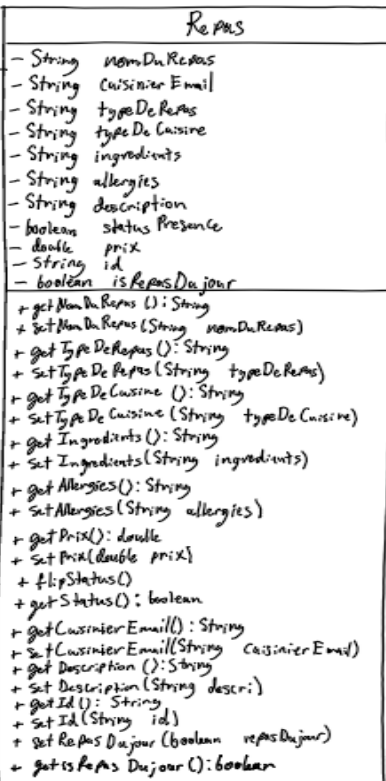 Repas
- String nomDuRepas
- String cuisinierEmail
- String typeDeRepas
- String typeDeCuisine
- String ingredients
- String allergies
- String description
- boolean statusPresence
- double prix
- String id
- boolean isRepasDujour
+ getNomDuRepas(): String
+ setNomDuRepas(String nomDuRepas)
+ getTypeDeRepas(): String
+ setTypeDeRepas(String typeDeRepas)
+ getTypeDeCuisine(): String
+ setTypeDeCuisine(String typeDeCuisine)
+ getIngredients(): String
+ setIngredients(String ingredients)
+ getAllergies(): String
+ setAllergies(String allergies)
+ getPrix(): double
+ setPrix(double prix)
+ flipStatus()
+ getStatus(): boolean
+ getCuisinierEmail(): String
+ setCuisinierEmail(String cuisinierEmail)
+ getDescription(): String
+ setDescription(String descri)
+ getId(): String
+ setId(String id)
+ setRepasDujour(boolean repasDujour)
+ getisRepasDujour(): boolean